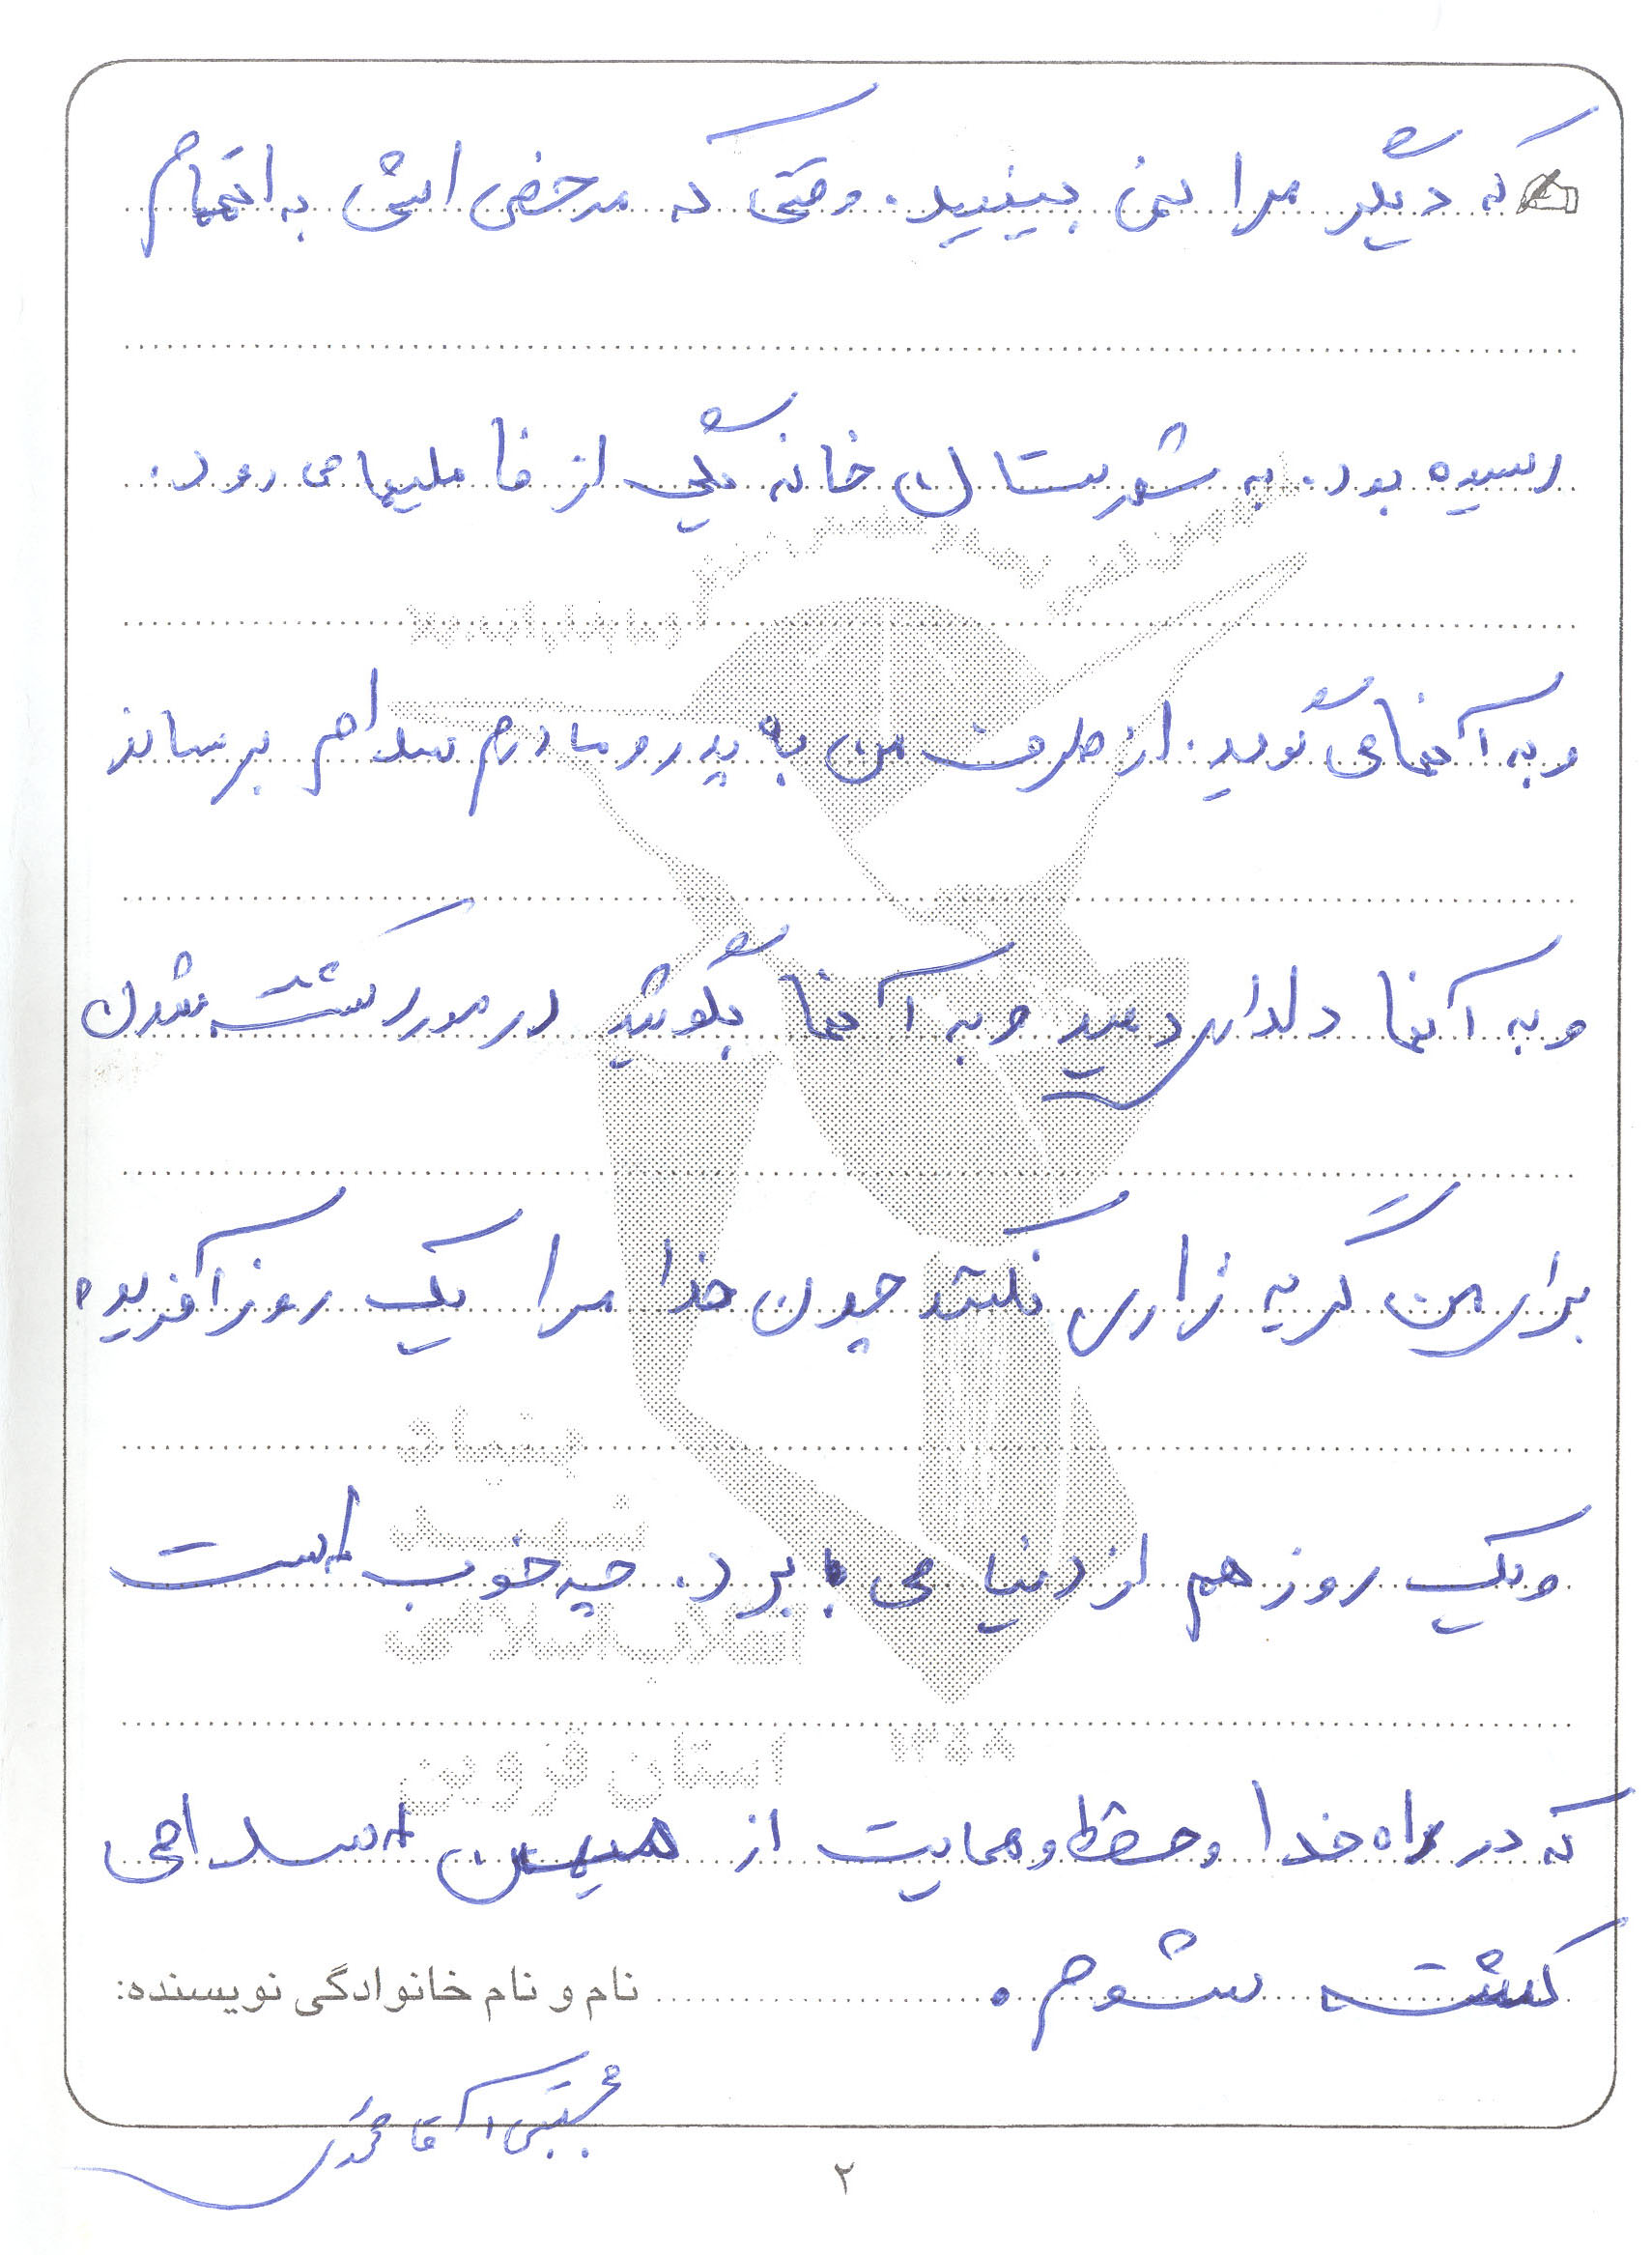 که دیگر مرا نمی بینید. وقتی که مرخصی اش به اتمام
رسیده بود. به شهرستان خانه یکی از فا ملیها می رود.
و به آنها می گوید. از طرف من به پدر و مادرم سلام برساند
و به آنها دلداری دهید و به آنها بگوئید در مورد کشته شدن
برای من گریه زاری نکنند چون خدا مرا یک روز آفریده
و یک روز هم از دنیا می برد. چه خوب است
که در راه خدا و حفظ و حمایت از میهن اسلامی
کشته شوم.
نام و نام خانوادگی نویسنده:
مجتبی آقا محمدی
۲
بنیاد
شهید
انقلاب اسلامی
استان قزوین
۱۳۵۸